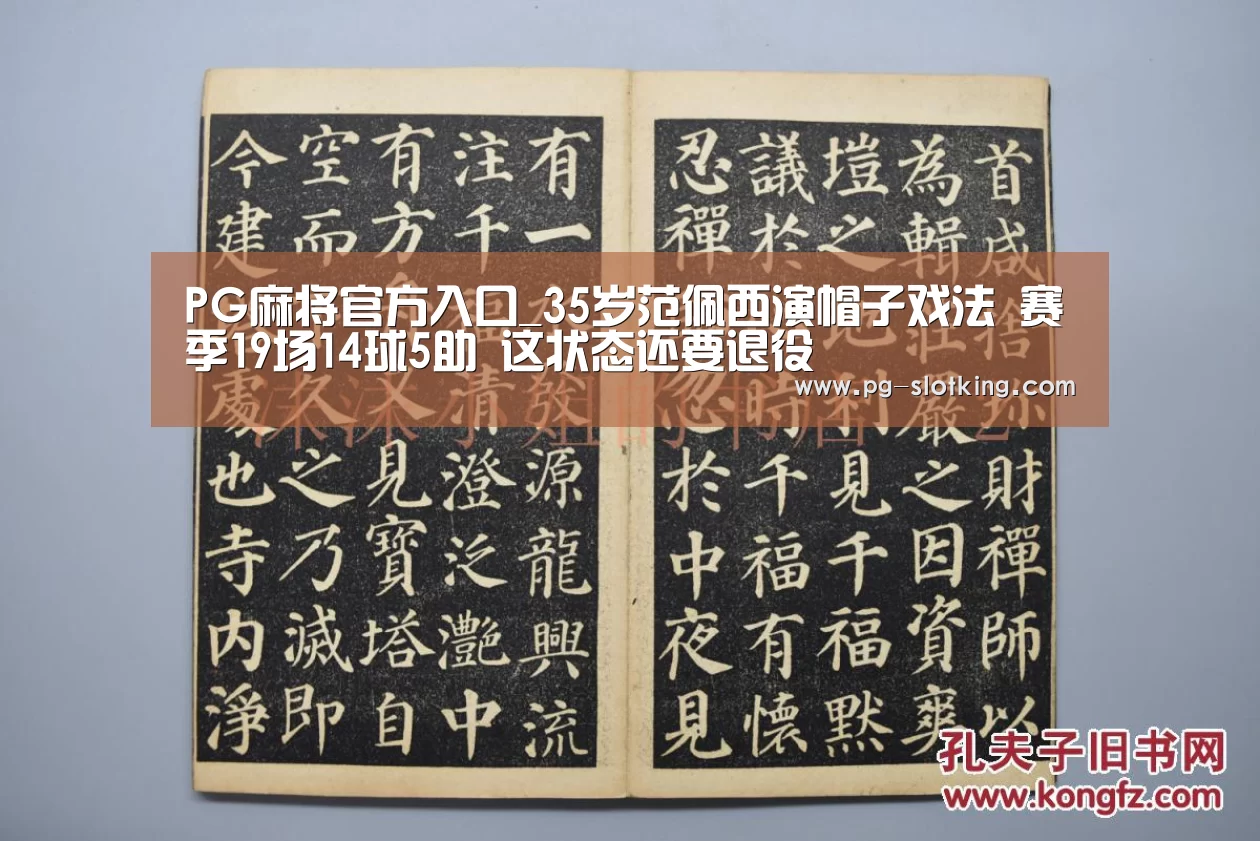 PG麻将官方入口_35岁范佩西演帽子戏法 赛
季19场14球5助 这状态还要退役
www.pg-slotking.com
首咸捨珎財禪師以
為輯莊嚴之因資爽
塏之地利見千福默
議於時千福有懷
忍禪忽於中夜見
有一水發源龍興流
注千福清澄泛灩中
有方舟又見寶塔自
空而久之乃滅即
今建處也寺内淨
孔夫子旧书网
www.kongfz.com